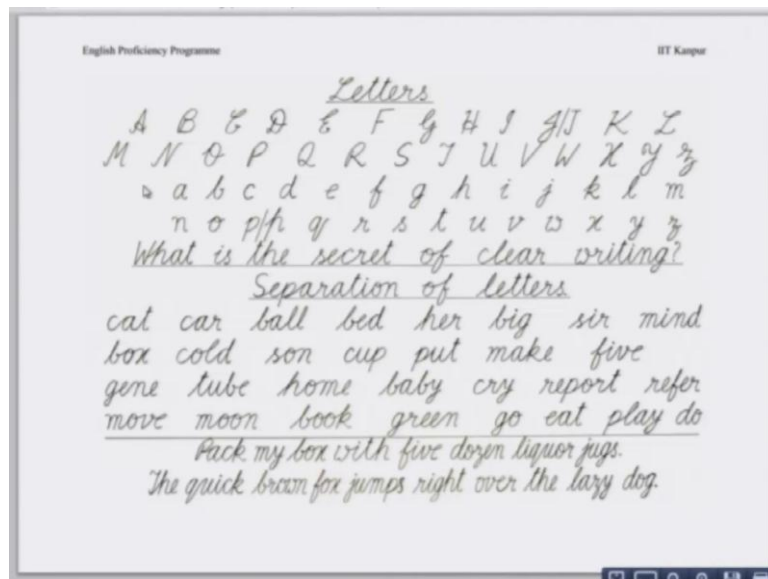 English Proficiency Programme IIT Kanpur
Letters
A B C D E F G H I J/J K L
M N O P Q R S T U V W X Y Z
a b c d e f g h i j k l m
n o p/p q r s t u v w x y z
What is the secret of clear writing?
Separation of letters
cat car ball bed her big sir mind
box cold son cup put make five
gene tube home baby cry report refer
move moon book green go eat play do
Pack my box with five dozen liquor jugs.
The quick brown fox jumps right over the lazy dog.